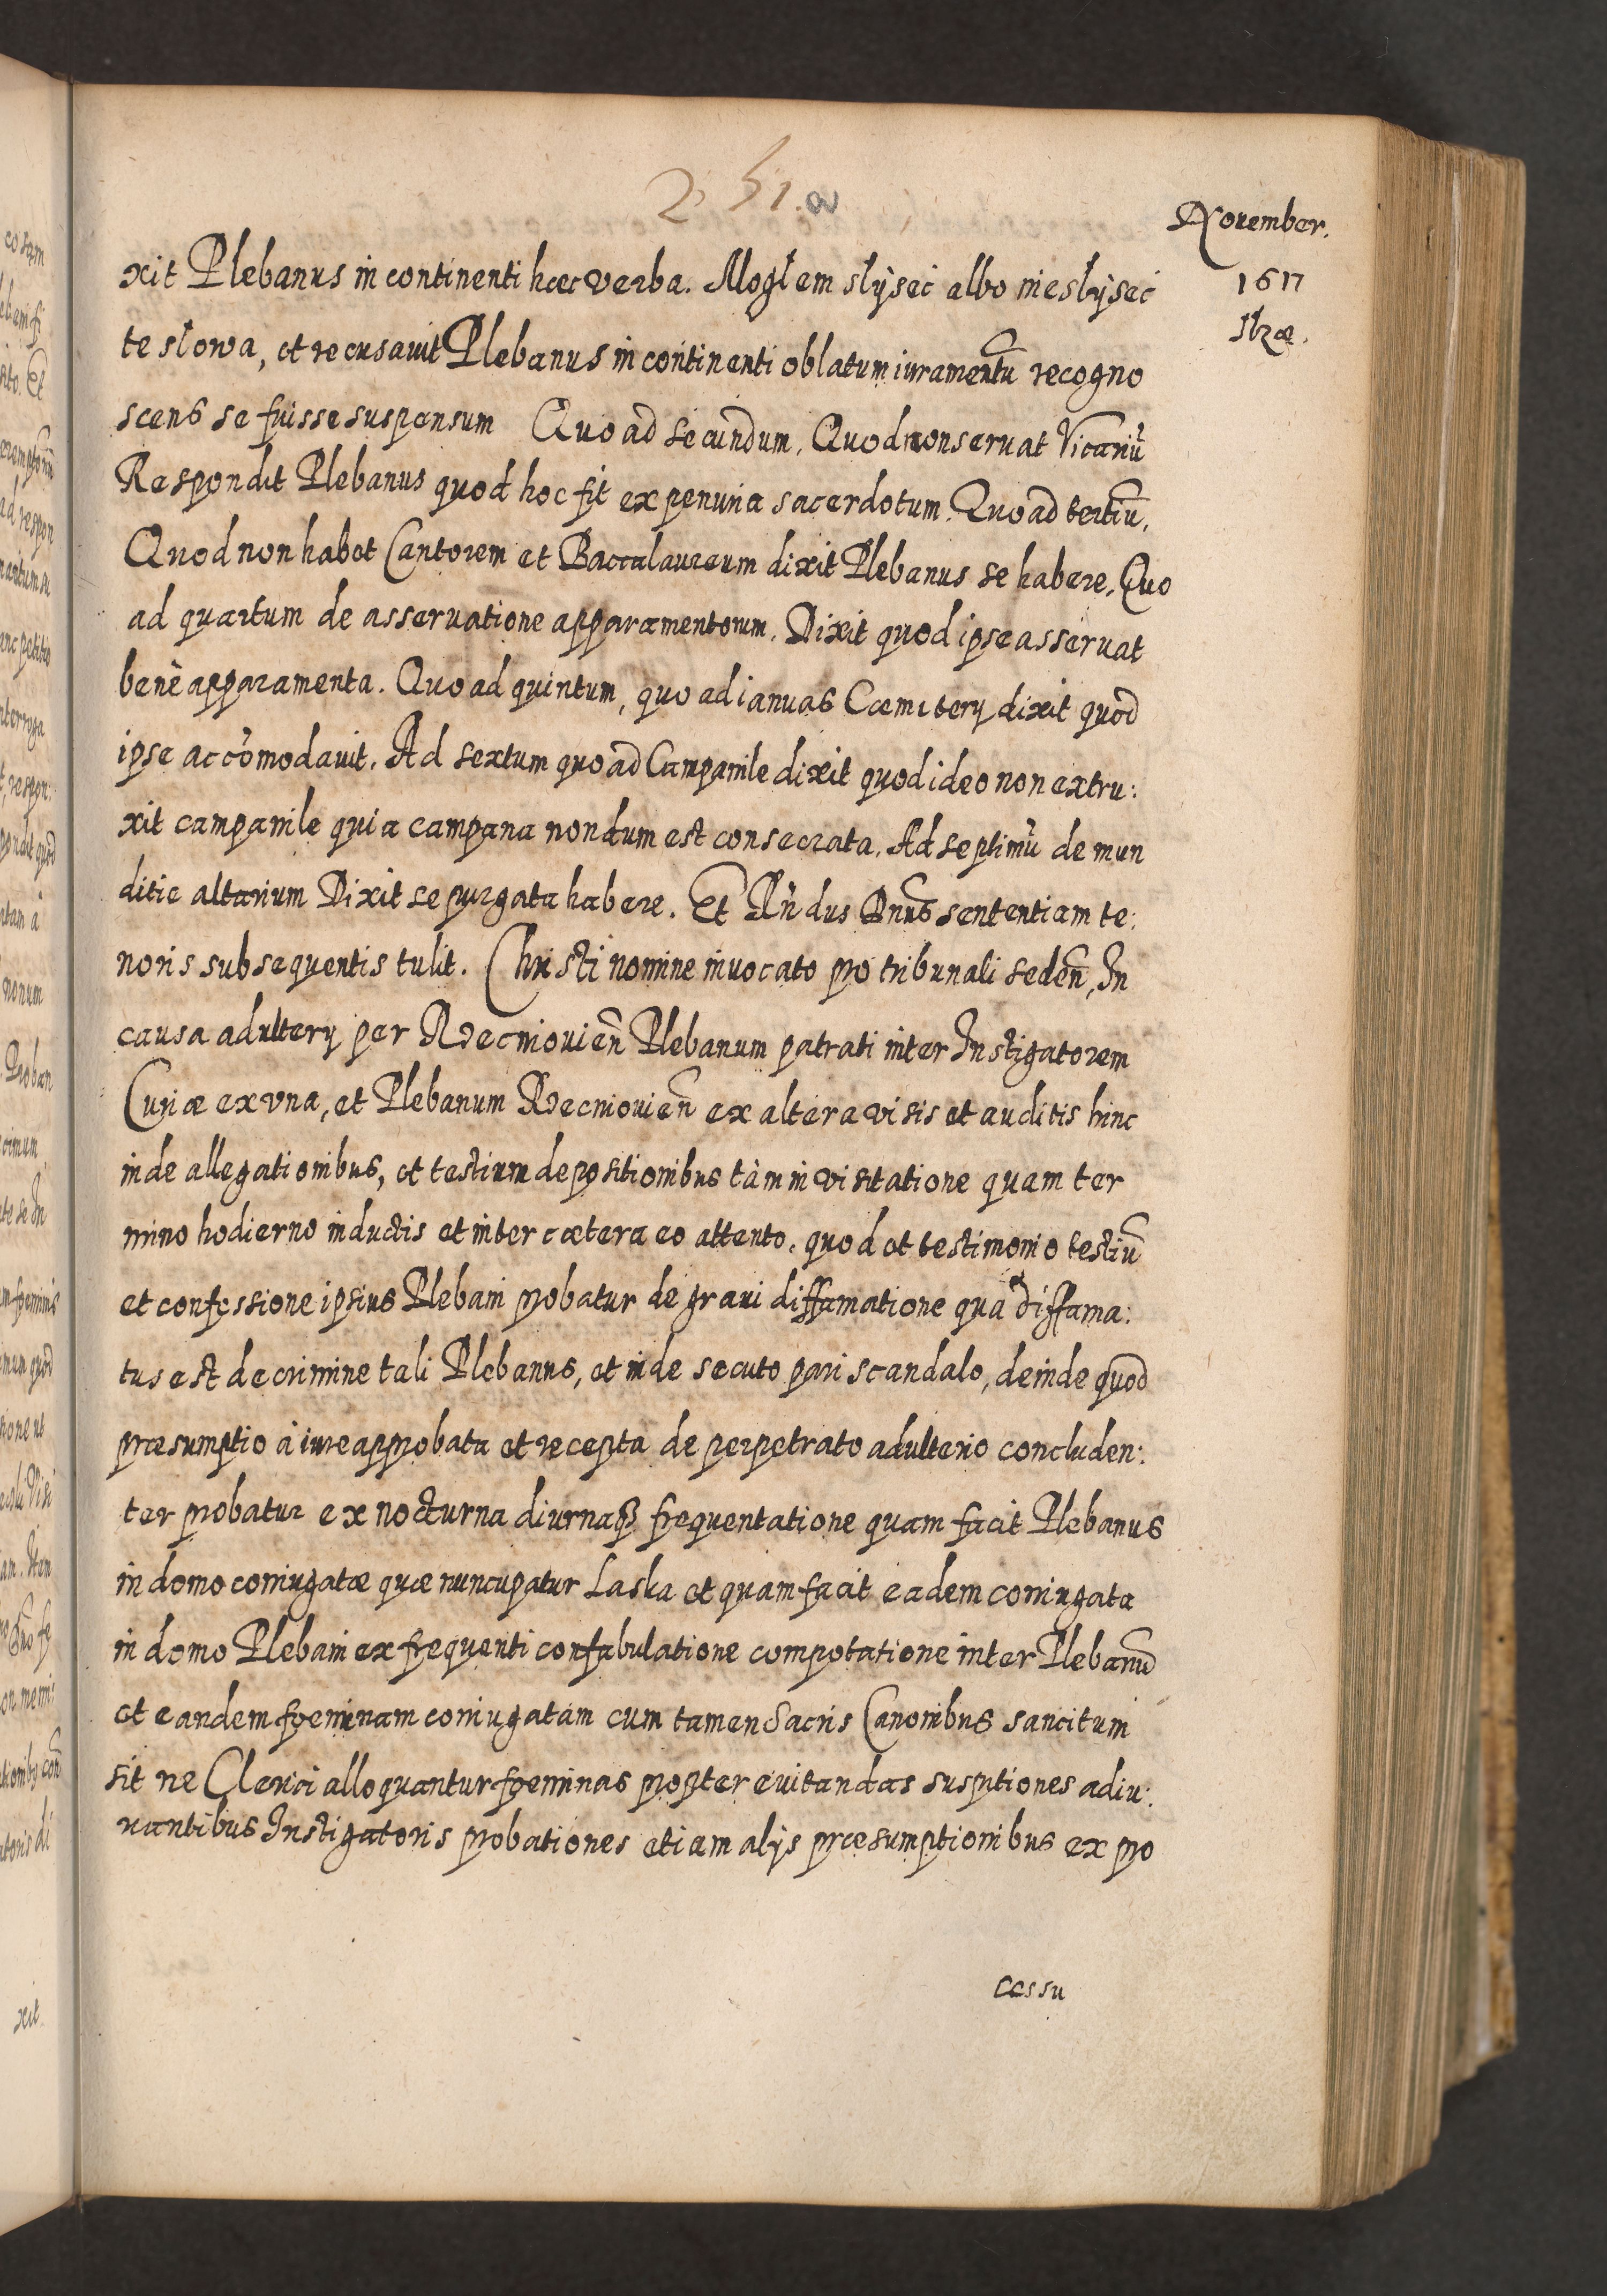 251.a
November.
1617
Ilzæ.
xit Plebanus in continenti hæc verba. Mogłem słÿseć albo niesłÿseć
te słowa, et recusauit Plebanus in continenti oblatum iuramentū recogno
scens se fuisse suspensum Quo ad secundum. Quod non seruat Vicariū
Respondit Plebanus quod hoc fit ex penuria sacerdotum. Quo ad tertiū.
Quod non habet Cantorem et Baccalaureum dixit Plebanus se habere. Quo
ad quartum de asseruatione apparamentorum. Dixit quod ipse asseruat
benè apparamenta. Quo ad quintum, quo ad ianuas Cœmiterÿ dixit quod
ipse accōmodauit. Ad sextum quo ad Campanile dixit quod ideo non extru:
xit campanile quia campana nondum est consecrata. Ad septimū de mun
ditie altarium Dixit se purgata habere. Et Rñdus Dnus sententiam te:
noris subsequentis tulit. Christi nomine inuocato pro tribunali sedeñ, In
causa adulterÿ per Rzecniouieñ Plebanum patrati inter Instigatorem
Curiæ ex vna, et Plebanum Rzecniouieñ ex altera visis et auditis hinc
inde allegationibus, et testium depositionibus tàm in visitatione quam ter
mino hodierno inductis et inter cætera eo attento, quod et testimonio testiū
et confessione ipsius Plebani probatur de graui diffamatione qua diffama:
tus est de crimine tali Plebanus, et inde secuto pari scandalo, deinde quod
præsumptio à iure approbata et recepta de perpetrato adulterio concluden:
ter probatur ex nocturna diurnaq3 frequentatione quam facit Plebanus
in domo coniugatæ quæ nuncupatur Laska et quam facit eadem coniugata
in domo Plebani ex frequenti confabulatione compotatione inter Plebanū
et eandem fœminam coniugatam cum tamen Sacris Canonibus sancitum
sit ne Clerici alloquantur fœminas propter euitandas susptiones adiu:
uantibus Instigatoris probationes etiam alÿs præsumptionibus ex pro
cessu